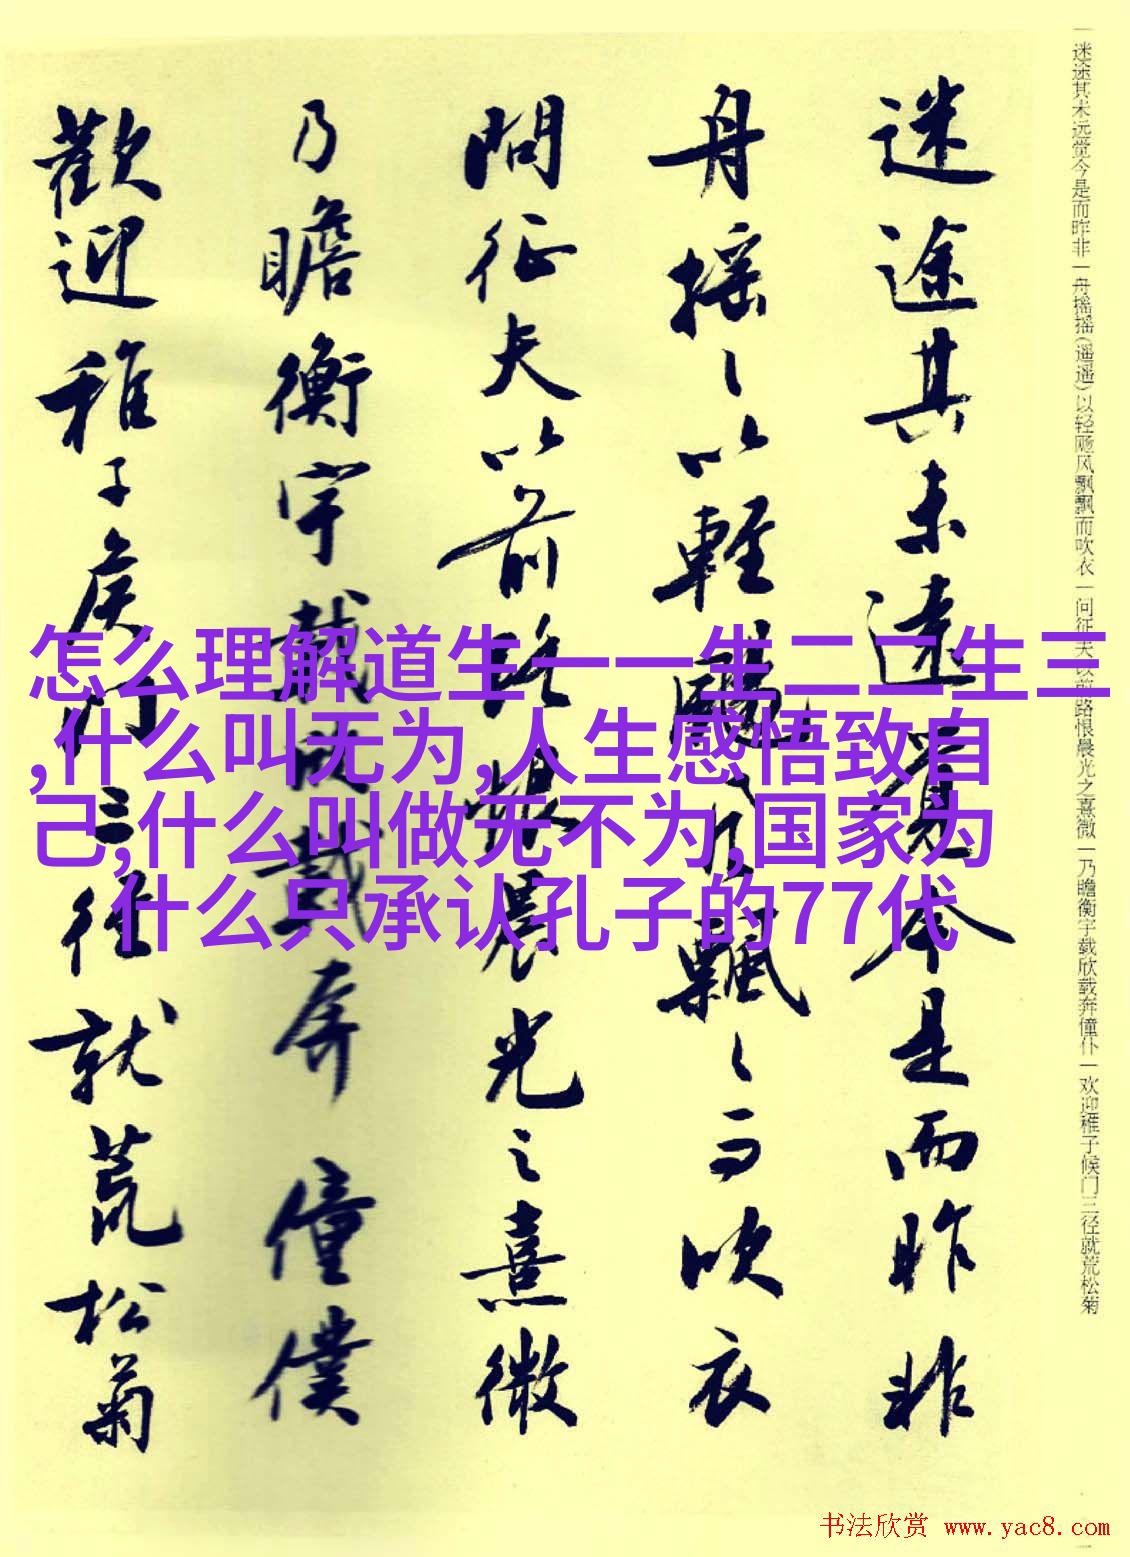 迷途其未遠覺今是而昨非
舟摇〻以輕颺風飄〻而吹衣
問征夫以前路恨晨光之熹微
乃瞻衡宇載欣載奔僮僕
歡迎稚子候門三徑就荒松菊
一迷途其未远觉今是而昨非一舟摇摇(遥遥)以轻飏风飘飘而吹衣一问征夫以前路恨晨光之熹微一乃瞻衡宇载欣载奔僮仆一欢迎稚子候门三径就荒松菊
怎么理解道生一一生二二生三
,什么叫无为,人生感悟致自
己,什么叫做无不为,国家为
什么只承认孔子的77代
书法欣赏 www.yac8.com